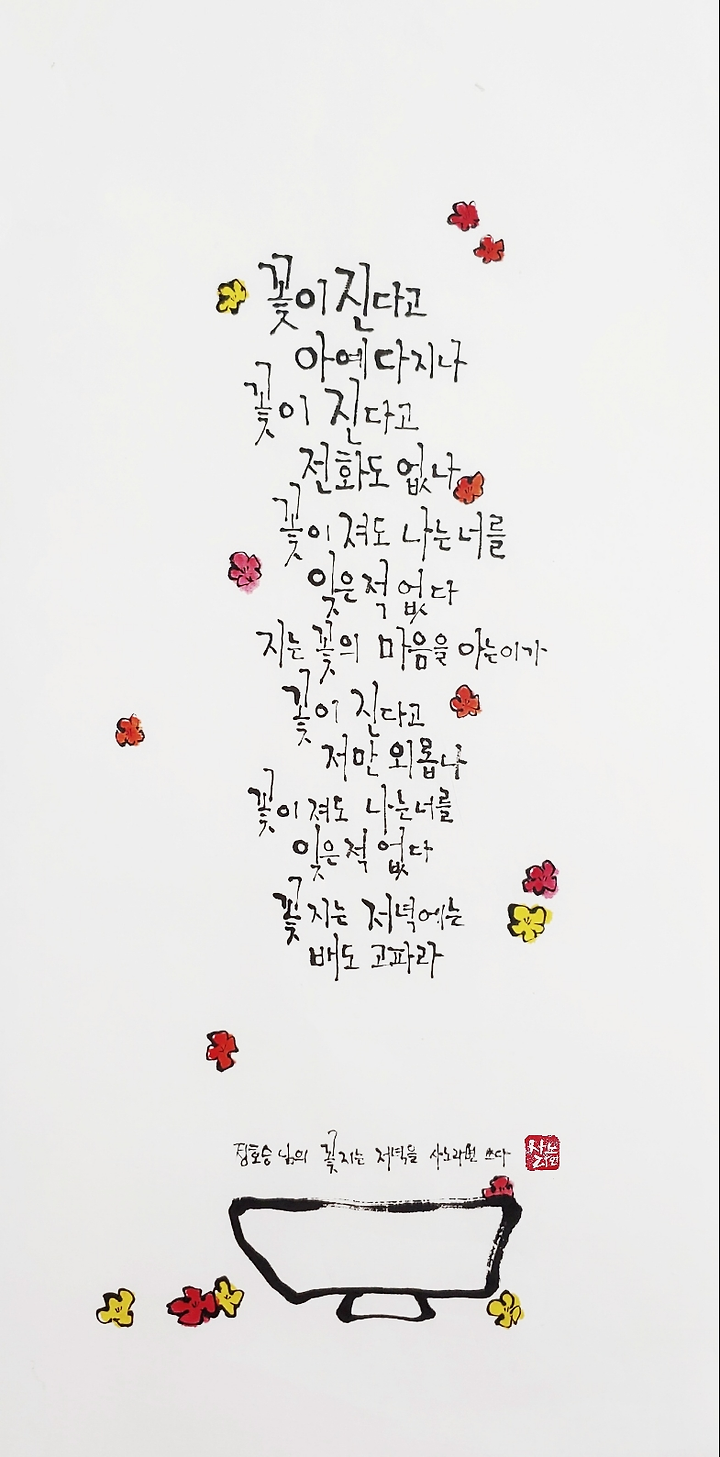 꽃이 진다고
아예 다 지나
꽃이 진다고
전화도 없나
꽃이 져도 나는 너를
잊은 적 없다
지는 꽃의 마음을 아는 이가
꽃이 진다고
저만 외롭나
꽃이 져도 나는 너를
잊은 적 없다
꽃 지는 저녁에는
배도 고파라
정호승 님의 꽃 지는 저녁을 사노라면 쓰다